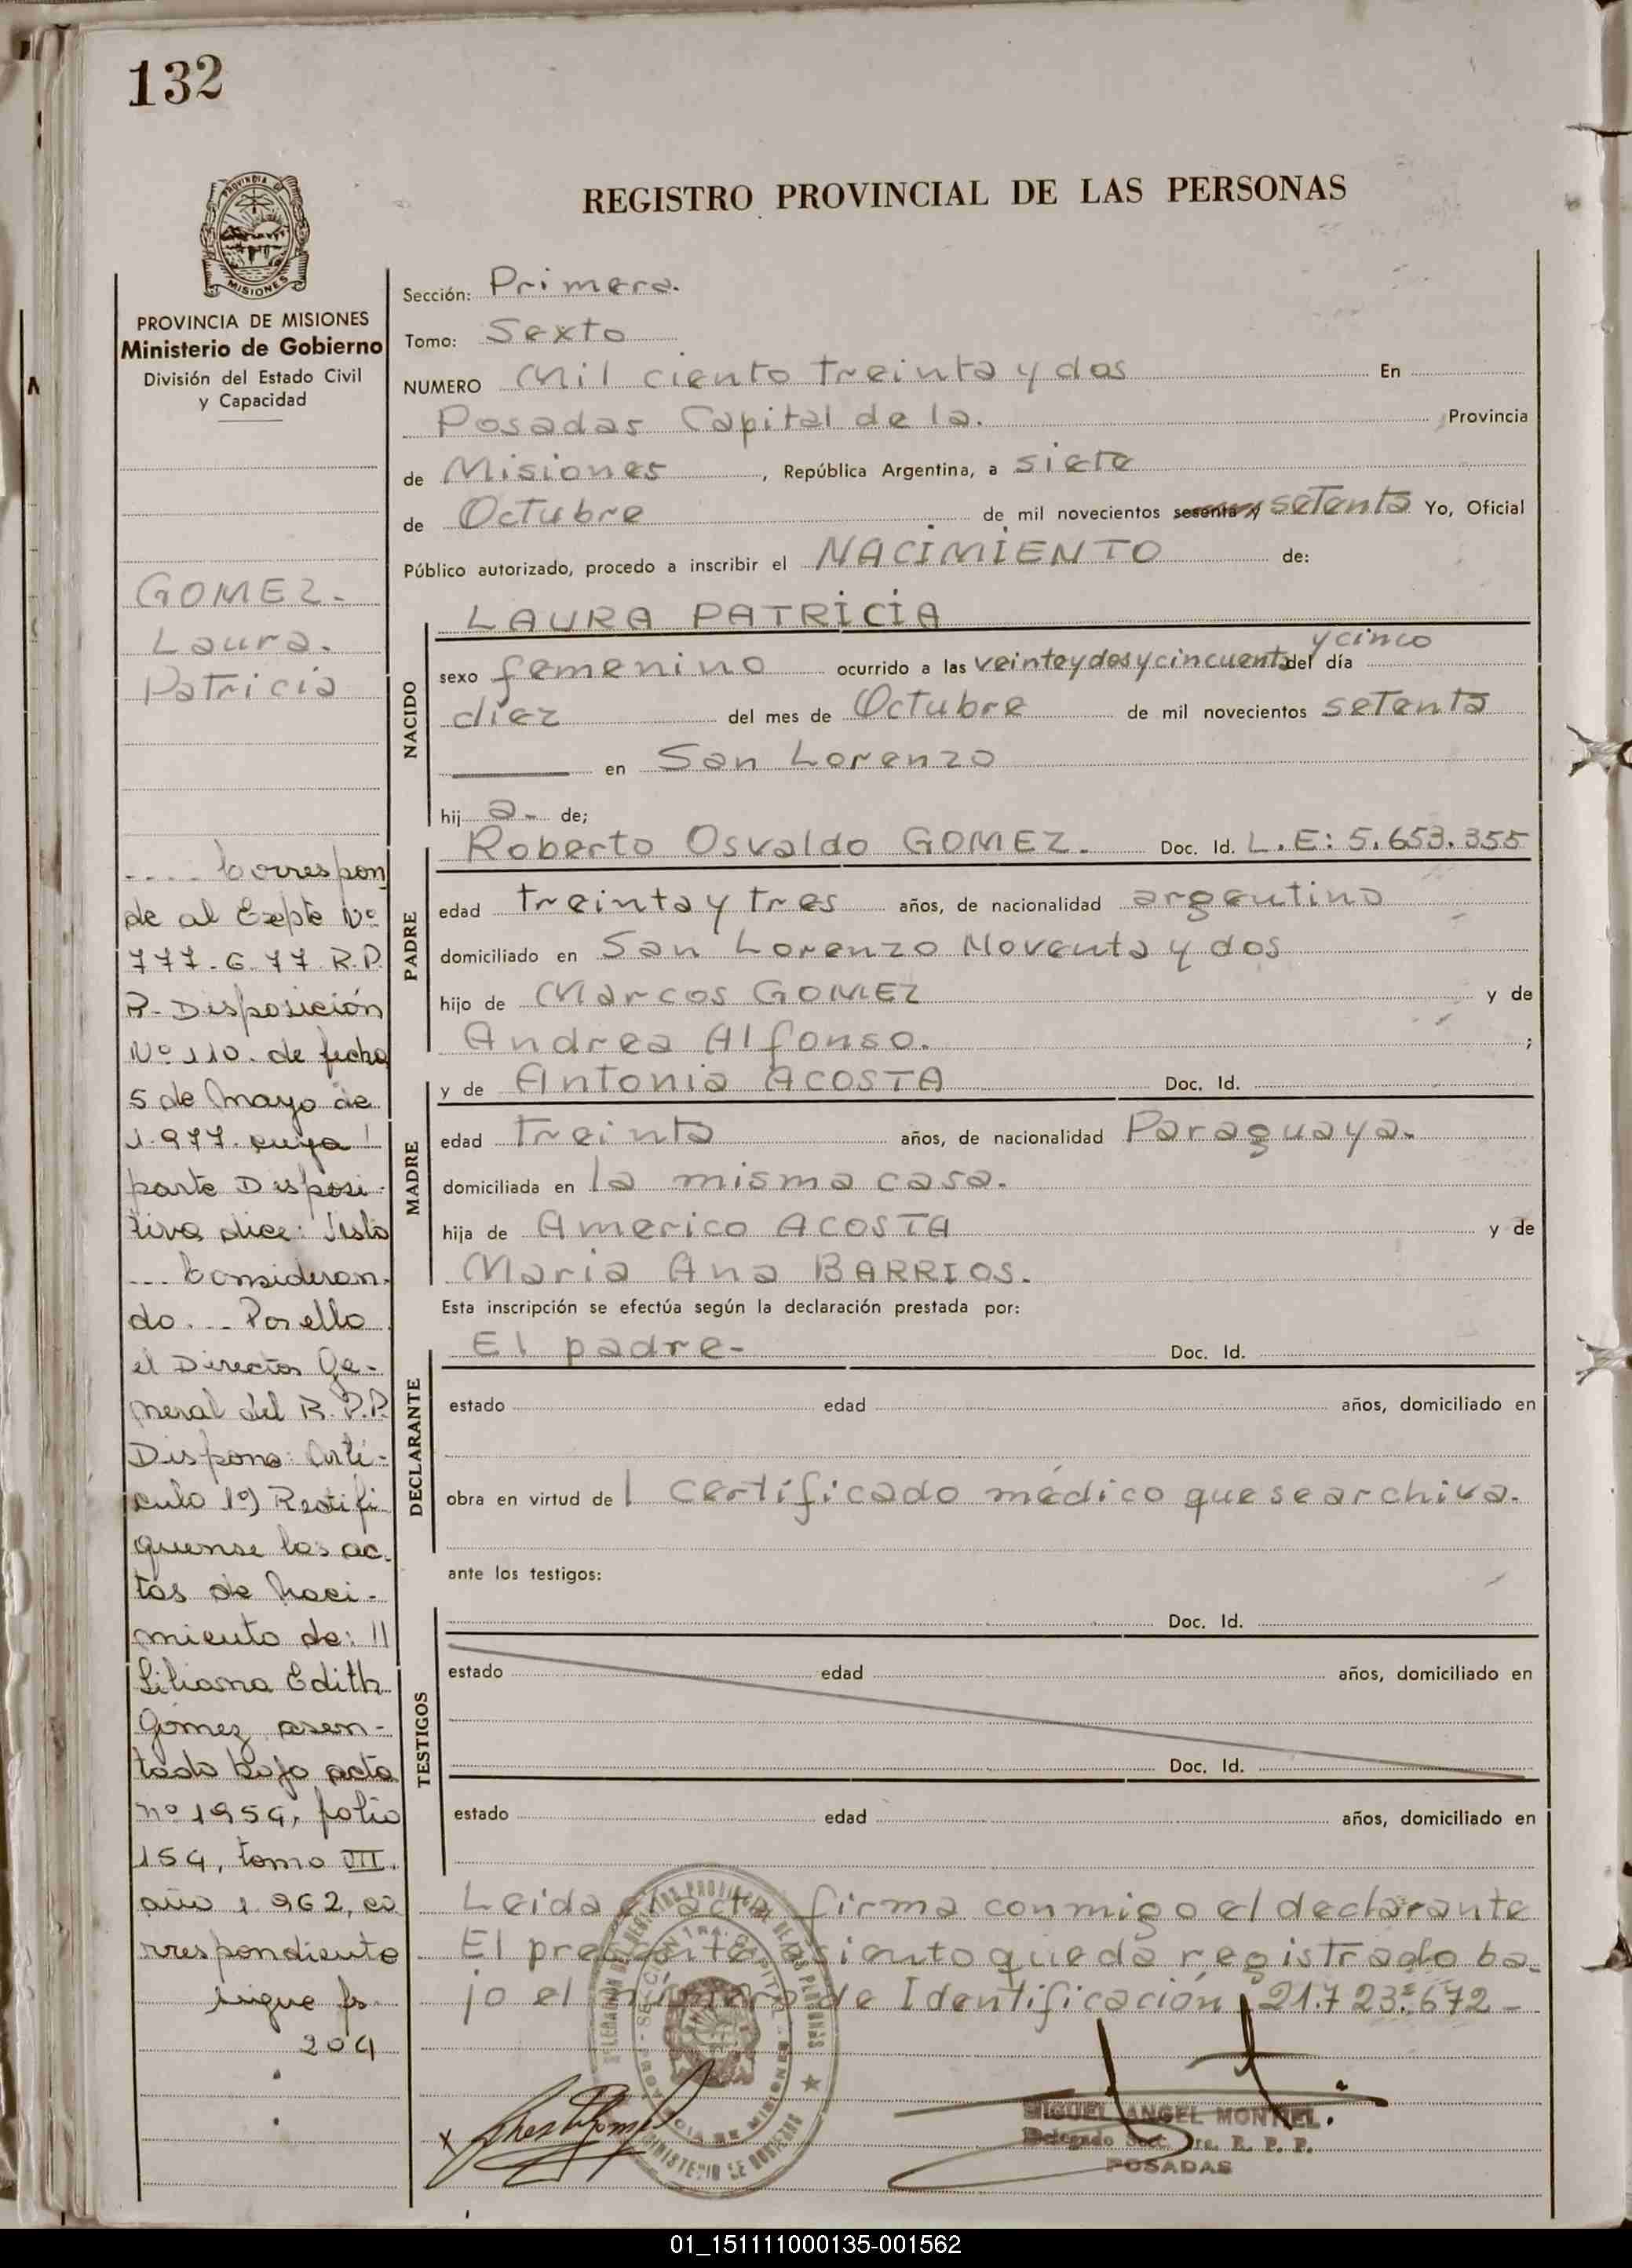 132
REGISTRO PROVINCIAL DE LAS PERSONAS
PROVINCIA DE MISIONES
Ministerio de Gobierno
División del Estado Civil
y Capacidad
GOMEZ.-
Laura.
Patricia
.... Correspon
de al Expte Nº
777-G-77-R.P.
P- Disposición
Nº 110. de fecha
5 de Mayo de
1.977. cuya
parte Disposi-
tiva dice: Visto
... Consideran-
do... Por ello
el Director Ge-
neral del R.P.P.
Dispone: Artí-
culo 1º) Rectifi
quense las ac-
tas de Naci-
miento de: //
Liliana Edith
Gómez asen-
tada bajo acta
nº 1954, folio
154, tomo VII.
año 1.962, co
rrespondiente
sigue fs.
204
Sección: Primera.
Tomo: Sexto
NUMERO Mil ciento treinta y dos En
Posadas Capital de la. Provincia
de Misiones, República Argentina, a siete
de Octubre de mil novecientos sesenta y setenta Yo, Oficial
Público autorizado, procedo a inscribir el NACIMIENTO de:
NACIDO
LAURA PATRICIA
y cinco
sexo femenino ocurrido a las veinteydosycincuenta del día
diez del mes de Octubre de mil novecientos setenta
en San Lorenzo
hij a- de;
PADRE
Roberto Osvaldo GOMEZ. Doc. Id. L.E: 5.653.355
edad treinta y tres años, de nacionalidad argentino
domiciliado en San Lorenzo Noventa y dos
hijo de Marcos GOMEZ y de
Andrea Alfonso. ;
MADRE
y de Antonia ACOSTA Doc. Id.
edad treinta años, de nacionalidad Paraguaya.
domiciliada en la misma casa.
hija de Americo ACOSTA y de
Maria Ana BARRIOS.
Esta inscripción se efectúa según la declaración prestada por:
DECLARANTE
El padre- Doc. Id.
estado edad años, domiciliado en
obra en virtud de l certificado médico que se archiva.
ante los testigos:
TESTIGOS
Doc. Id.
estado edad años, domiciliado en
Doc. Id.
estado edad años, domiciliado en
Leida el acta firma conmigo el declarante
El presente asiento queda registrado ba-
jo el número de Identificación 21.723.672-
MIGUEL ANGEL MONTIEL.
Delegado Secc. 1ra. R. P. P.
POSADAS
01_151111000135-001562